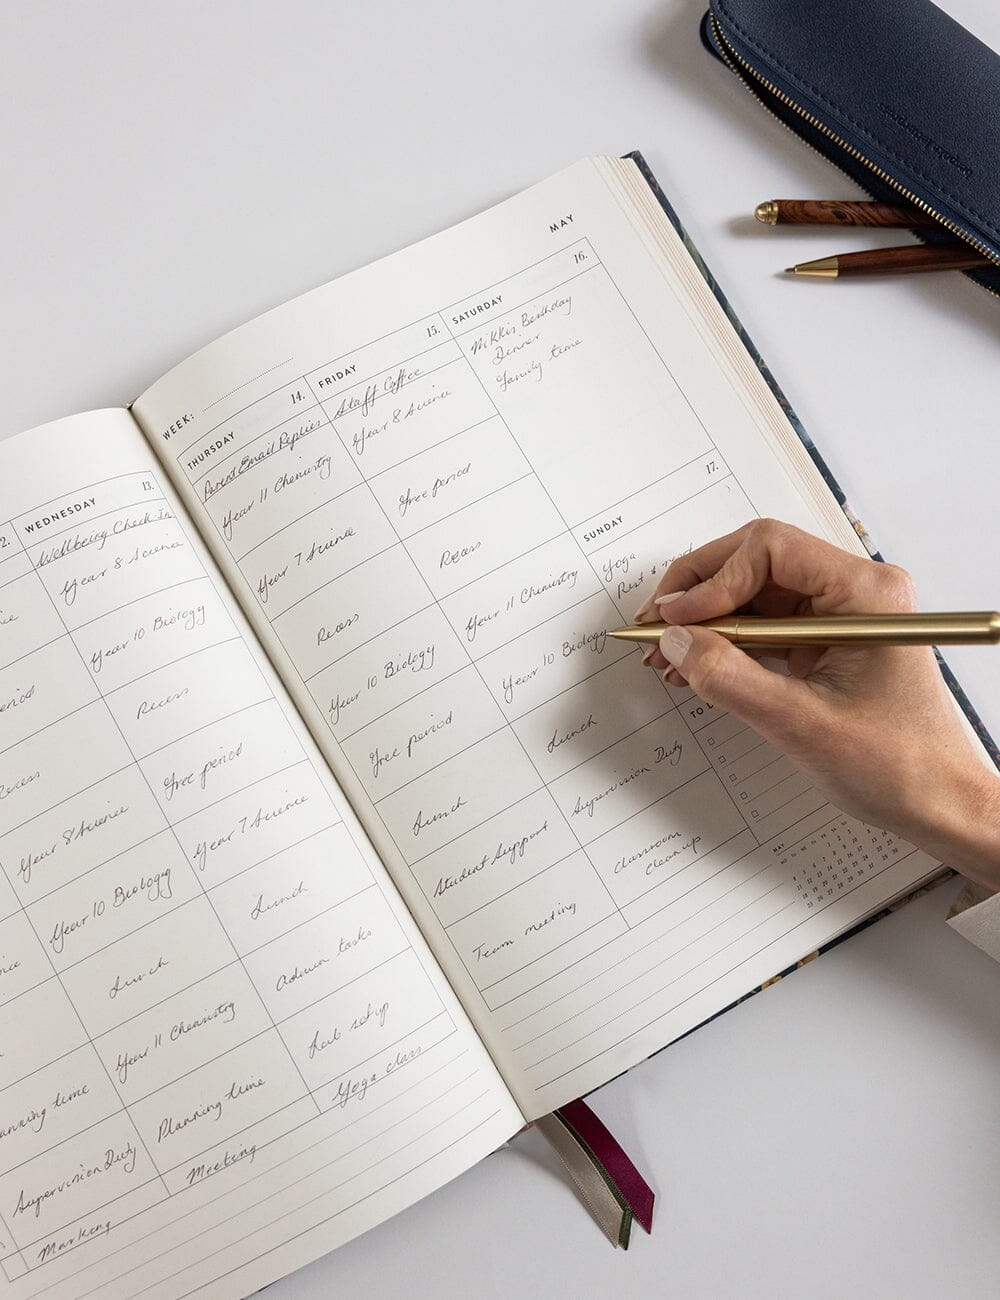 2.
nce
eriod
ecess
nce
anning time
WEDNESDAY
13.
Wellbeing Check-In
Year 8 Science
Year 10 Biology
Recess
Free period
Year 7 Science
Lunch
Admin tasks
Lab set up
Yoga class
Year 8 Science
Year 10 Biology
Lunch
Year 11 Chemistry
Planning time
Meeting
Supervision Duty
Marking
MAY
WEEK:
THURSDAY
14.
Parent Email Replies
Year 11 Chemistry
Year 7 Science
Recess
Year 10 Biology
Free period
Lunch
Student Support
Team meeting
FRIDAY
15.
Staff Coffee
Year 8 Science
Free period
Recess
Year 11 Chemistry
Year 10 Biology
Lunch
Supervision Duty
Classroom
clean up
SATURDAY
16.
Nikki's Birthday
Dinner
Family time
SUNDAY
17.
Yoga
Rest &
TO D
MAY